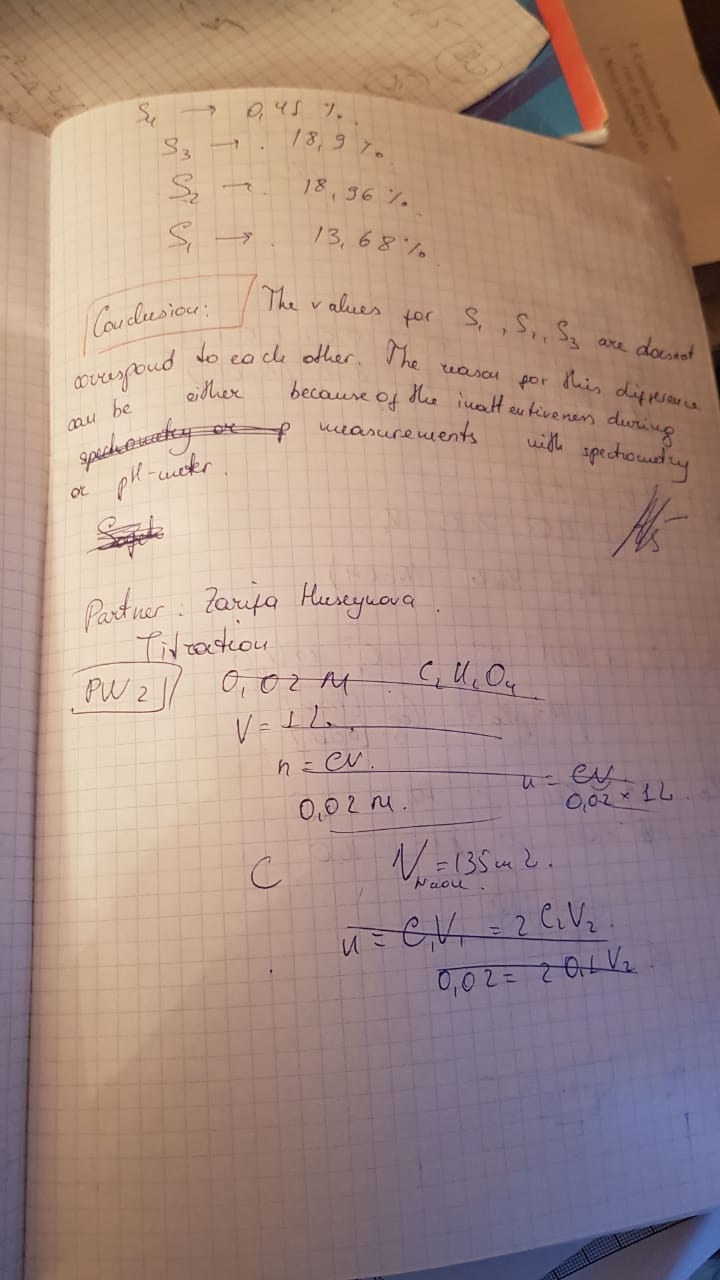 S4 → 0,45 %.
S3 → . 18,9 %
S2 → . 18,96 %.
S1 → . 13,68 %
Conclusion: The values for S1, S2, S3 are doesnot
correspond to each other. The reason for this difference
can be either because of the inattentiveness during
spectrometry or p measurements with spectrometry
or pH-meter.
Partner: Zarifa Huseynova.
Titration
PW 2 0,02 M C2H2O4
V = 1 L.
n = CV. n = CV
0,02 M. 0,02 × 1L
C V NaOH = 135 mL.
n = C1V1 = 2 C2V2.
0,02 = 2 0,1 V2.